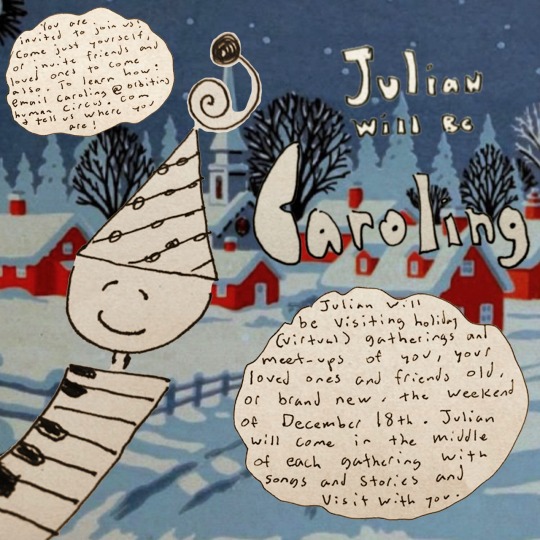 You are
invited to join us!
Come just yourself,
or invite friends and
loved ones to come
also. To learn how:
email Caroling@orbiting
human Circus. Com
& tell us where you
are!
Julian
Will Be
Caroling
Julian will
be visiting holiday
(virtual) gatherings and
meet-ups of you, your
loved ones and friends old,
or brand new, the weekend
of December 18th. Julian
will come in the middle
of each gathering with
songs and stories and
visit with you.